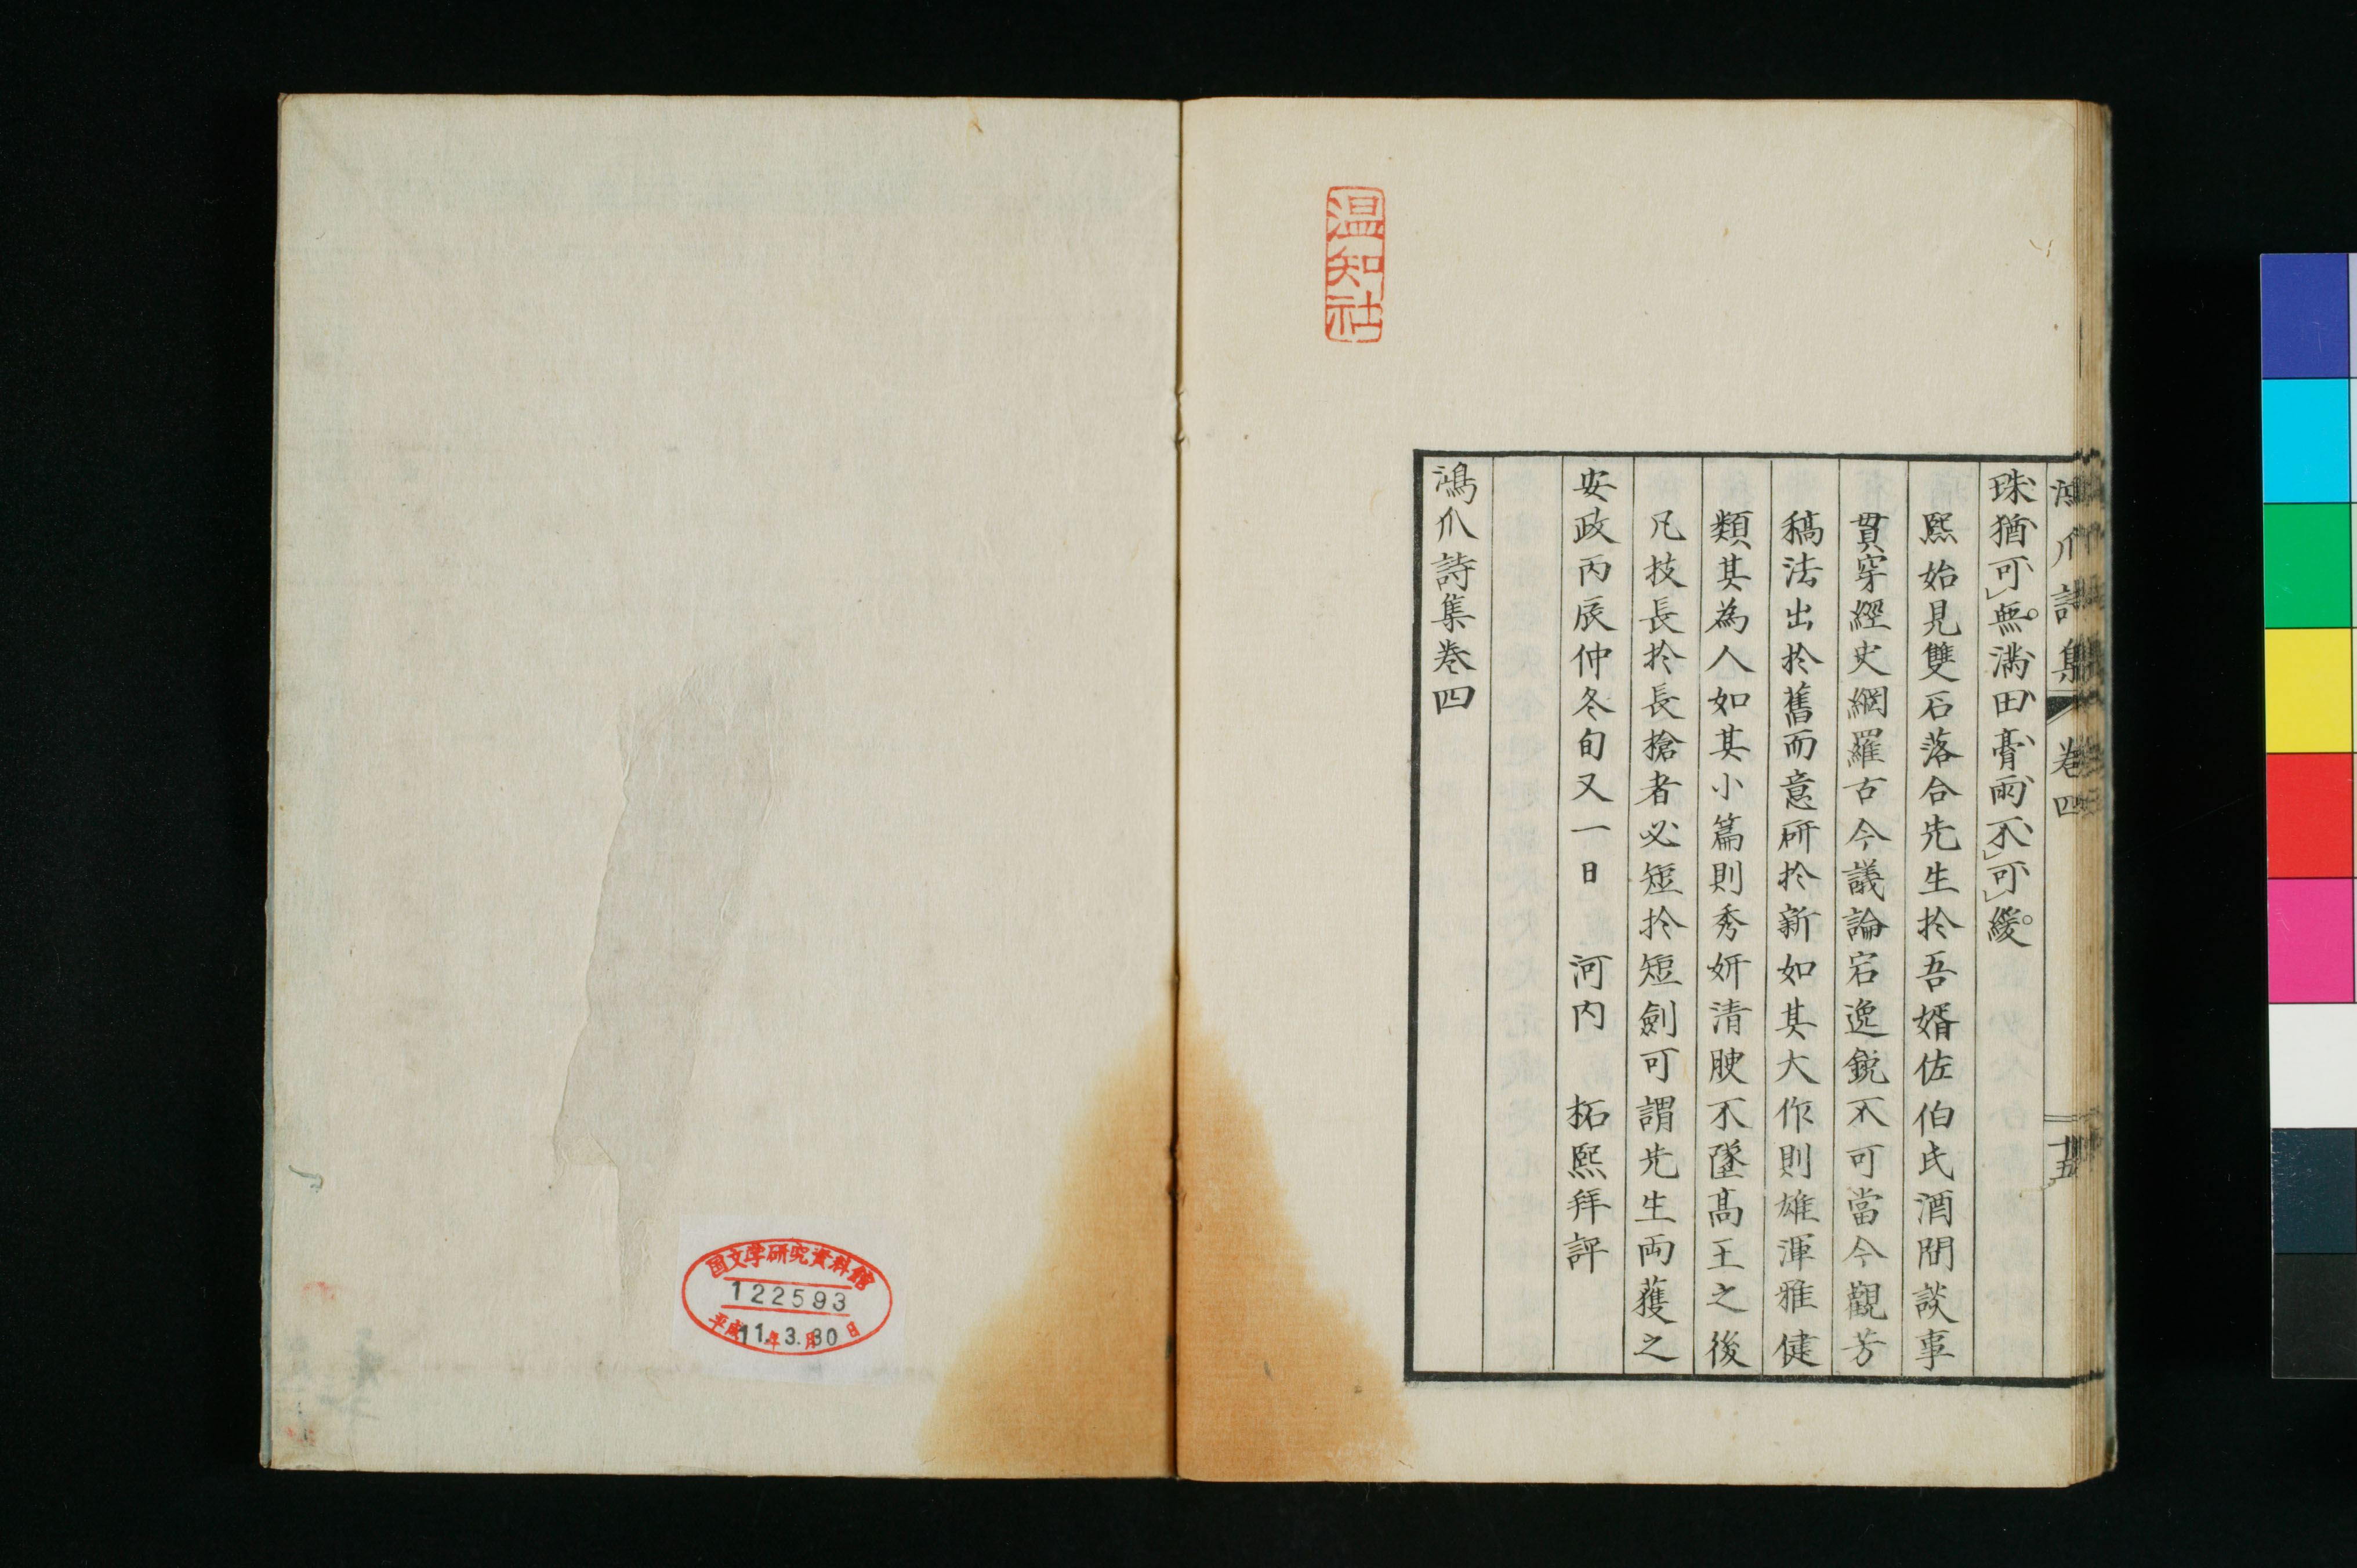 鴻爪詩集 卷四 十五
珠猶可無滿田膏雨不可緩
熙始見雙石落合先生於吾婿佐伯氏酒間談事
貫穿經史網羅古今議論宕逸銳不可當今觀芳
稿法出於舊而意研於新如其大作則雄渾雅健
類其為人如其小篇則秀妍清腴不墜高王之後
凡技長於長槍者必短於短劍可謂先生両獲之
安政丙辰仲冬旬又一日 河内 柘熙拜評
鴻爪詩集卷四
温知社
国文学研究資料館
122593
平成11年3.月30日